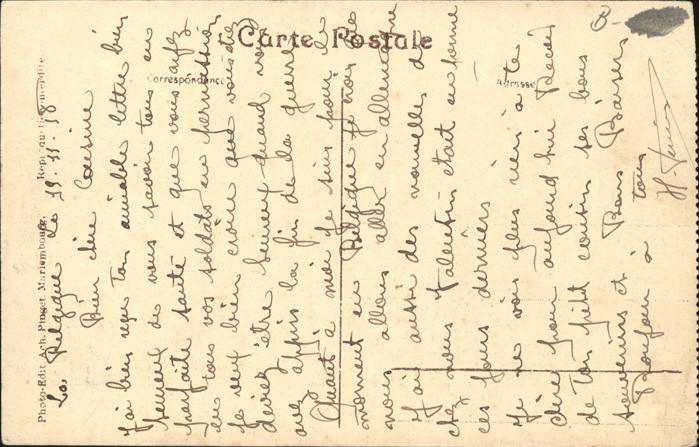 Carte Postale
Correspondance
Adresse
Photo-Edit Ach. Pinget, Mariembourg. Reproduction interdite.
La Belgique le 19.11.18
Bien chère Cousine
J'ai bien reçu ton aimable lettre bien
heureux de vous savoir tous en
parfaite santé et que vous ayez
eu tous vos soldats en permission
je veux bien croire que vous
deviez être heureux quand vous
avez appris la fin de la guerre
Quant à moi je suis pour le
moment en Belgique je crois que
nous allons aller en allemagne
J'ai aussi des nouvelles de
chez nous Valentin était en perme
ces jours derniers
Je ne vois plus rien à te
dire pour aujourd'hui Reçois
de ton petit cousin ses bons
souvenirs et Bons Baisers
Bonjour à tous